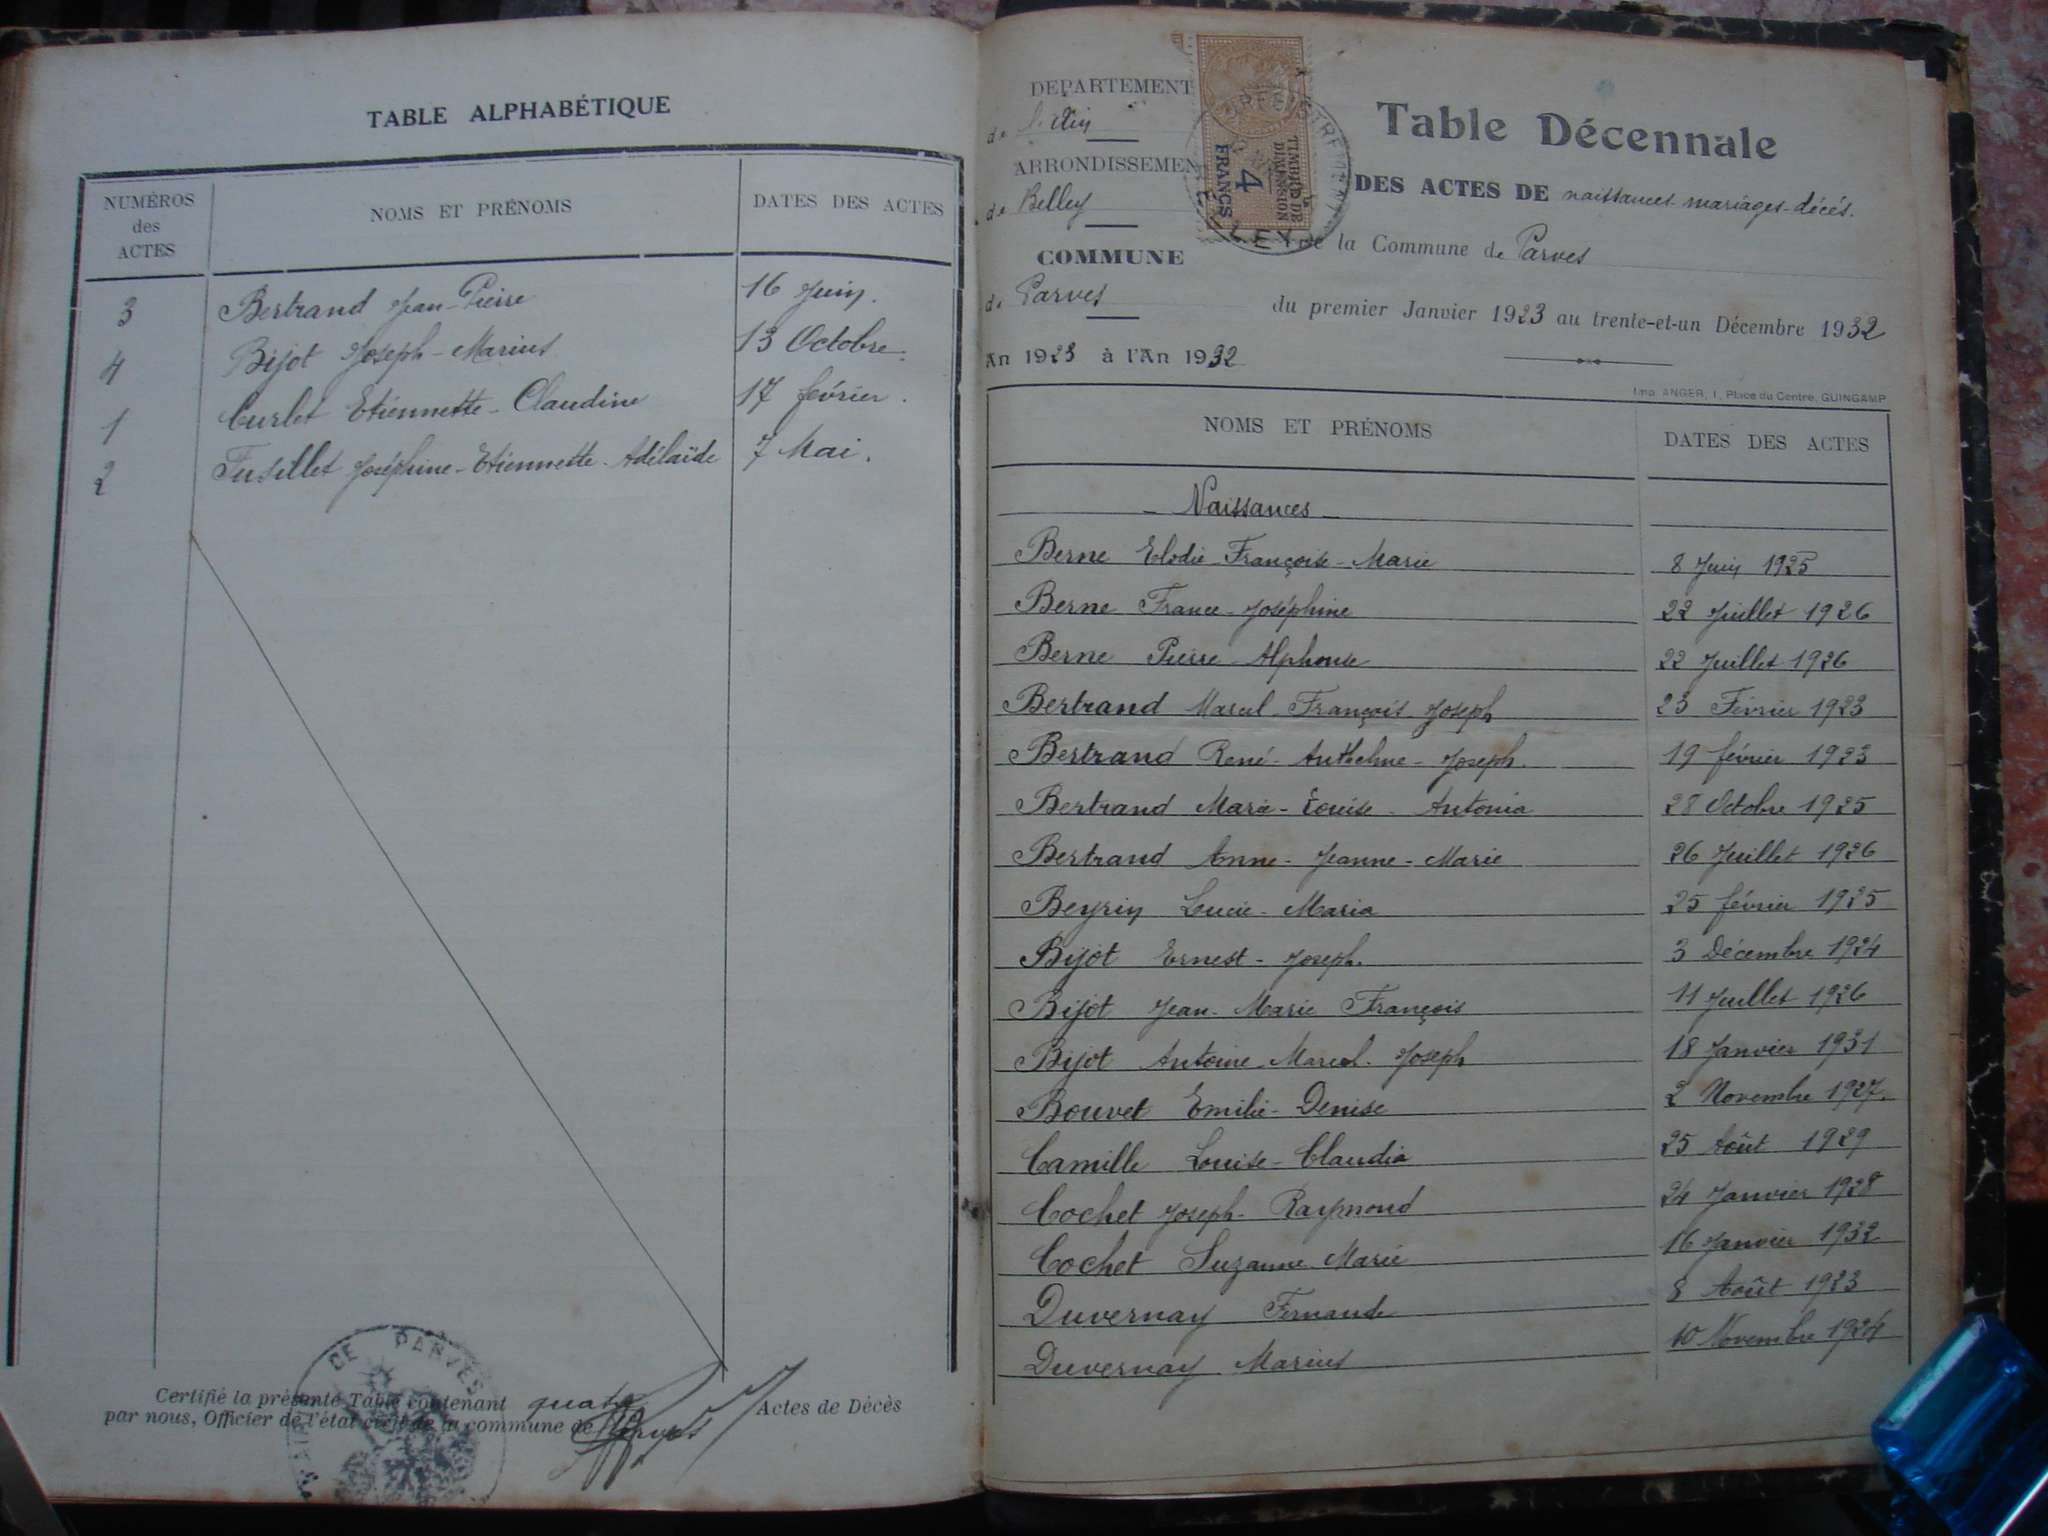 TABLE ALPHABÉTIQUE
NUMÉROS
des
ACTES
NOMS ET PRÉNOMS
DATES DES ACTES
3 Bertrand Jean-Pierre 16 Juin.
4 Bijot Joseph-Marius 13 Octobre.
1 Curlet Etiennette-Claudine 17 février.
2 Fusillet Joséphine-Etiennette-Adélaïde 7 Mai.
Certifié la présente Table contenant quatre Actes de Décès
par nous, Officier de l'état civil de la commune de Parves
DE PARVES
DEPARTEMENT
de l'Ain
ARRONDISSEMEN
de Belley
COMMUNE
de Parves
An 1923 à l'An 1932
TIMBRE DE
DIMENSION
4
FRANCS
Table Décennale
DES ACTES DE naissances-mariages-décés.
de la Commune de Parves
du premier Janvier 1923 au trente-et-un Décembre 1932
Imp. ANGER, 1, Place du Centre, GUINGAMP
NOMS ET PRÉNOMS
DATES DES ACTES
- Naissances -
Berne Elodie-Françoise-Marie 8 Juin 1925
Berne France-Joséphine 22 Juillet 1926
Berne Pierre-Alphonse 22 Juillet 1926
Bertrand Marcel-François-Joseph 23 Février 1923
Bertrand René-Anthelme-Joseph. 19 février 1923
Bertrand Marie-Louise-Antonia 28 Octobre 1925
Bertrand Anne-Jeanne-Marie 26 Juillet 1926
Beyrin Lucie-Maria 25 février 1925
Bijot Ernest-Joseph. 3 Décembre 1924
Bijot Jean-Marie François 11 Juillet 1926
Bijot Antoine-Marcel-Joseph 18 Janvier 1931
Bouvet Emilie-Denise 2 Novembre 1927.
Camille Louise-Claudia 25 Août 1929
Cochet Joseph-Raymond 24 Janvier 1928
Cochet Suzanne-Marie 16 Janvier 1932
Duvernay Fernande 8 Août 1923
Duvernay Marius 10 Novembre 1924